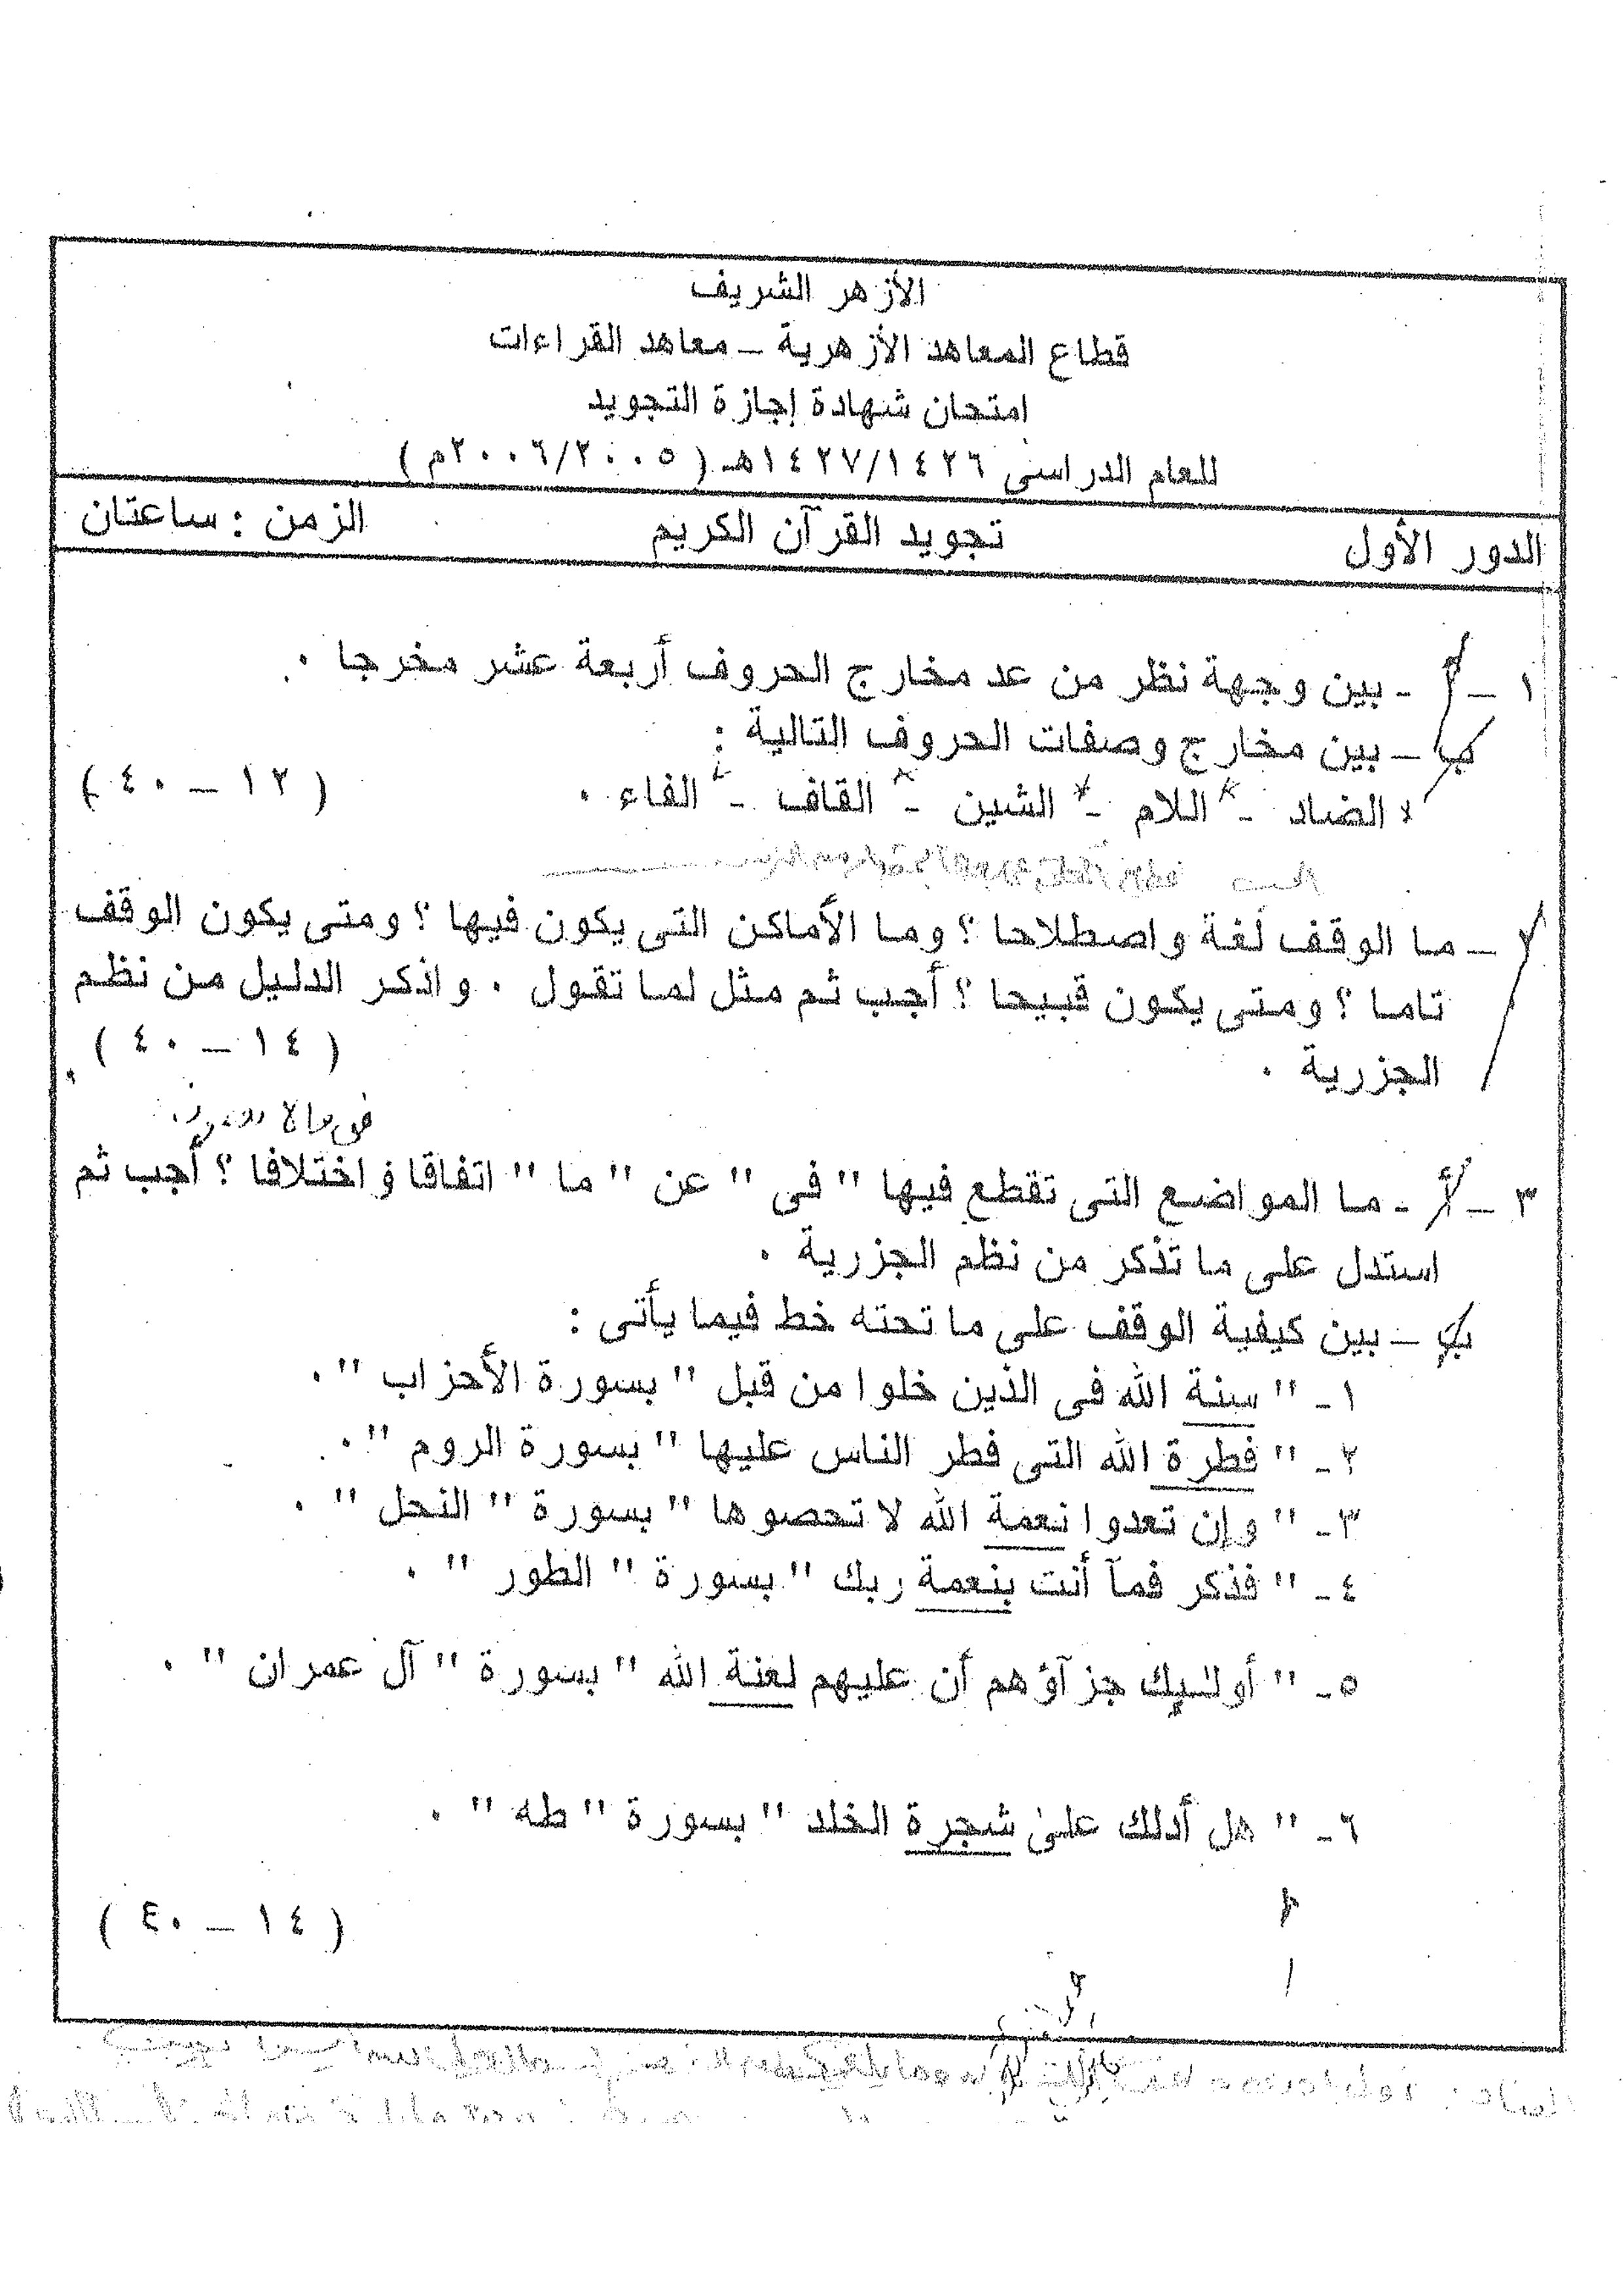 الأزهر الشريف
قطاع المعاهد الأزهرية – معاهد القراءات
امتحان شهادة إجازة التجويد
للعام الدراسى ١٤٢٧/١٤٢٦هـ (٢٠٠٦/٢٠٠٥م)
الدور الأول تجويد القرآن الكريم الزمن : ساعتان
١ – أ - بين وجهة نظر من عد مخارج الحروف أربعة عشر مخرجا .
ب – بين مخارج وصفات الحروف التالية :
الضاد - اللام - الشين - القاف - الفاء . ( ١٢ – ٤٠ )
٢ – ما الوقف لغة واصطلاحا ؟ وما الأماكن التى يكون فيها ؟ ومتى يكون الوقف
تاما ؟ ومتى يكون قبيحا ؟ أجب ثم مثل لما تقول . واذكر الدليل من نظم
الجزرية . ( ١٤ – ٤٠ )
٣ – أ - ما المواضع التى تقطع فيها " فى " عن " ما " اتفاقا واختلافا ؟ أجب ثم
استدل على ما تذكر من نظم الجزرية .
ب – بين كيفية الوقف على ما تحته خط فيما يأتى :
١- " سنة الله فى الذين خلوا من قبل " بسورة الأحزاب " .
٢- " فطرة الله التى فطر الناس عليها " بسورة الروم " .
٣- " وإن تعدوا نعمة الله لا تحصوها " بسورة " النحل " .
٤- " فذكر فمآ أنت بنعمة ربك " بسورة " الطور " .
٥- " أولئك جزآؤهم أن عليهم لعنة الله " بسورة " آل عمران " .
٦- " هل أدلك على شجرة الخلد " بسورة " طه " .
( ١٤ – ٤٠ )